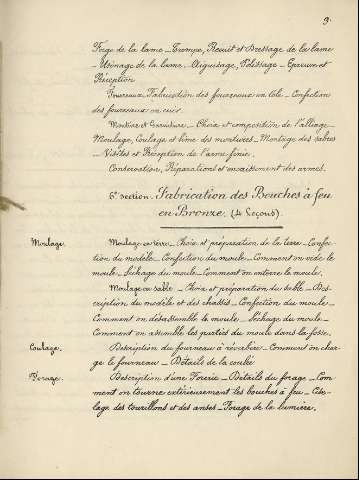 9.
Forge de la lame _ Trempe, Recuit et Dressage de la lame
_ Usinage de la lame. Aiguisage, Polissage _ Epreuve et
Réception
Fourreaux. Fabrication des fourreaux en tôle _ Confection
des fourreaux en cuir.
Monture et Garniture _ Choix et composition de l'alliage
Moulage, Coulage et lime des montures _ Montage des sabres
_ Visites et Réception de l'arme finie.
Conservation, Réparations et encaissement des armes.
6e section. Fabrication des Bouches à feu
en Bronze. (4 Leçons).
Moulage. Moulage en terre _ Choix et préparation de la terre _ Confec-
tion du modèle _ Confection du moule _ Comment on vide le
moule _ Séchage du moule _ Comment on enterre le moule.
Moulage en sable _ Choix et préparation du sable _ Des-
cription du modèle et des chassis _ Confection du moule _
Comment on désassemble le moule _ Séchage du moule _
Comment on assemble les parties du moule dans la fosse.
Coulage. Description du fourneau à réverbère _ Comment on char-
ge le fourneau _ Détails de la coulée
Forage. Description d'une Forerie _ Détails du forage _ Com
ment on tourne extérieurement les bouches à feu _ Cise-
lage des tourillons et des anses _ Forage de la lumière.